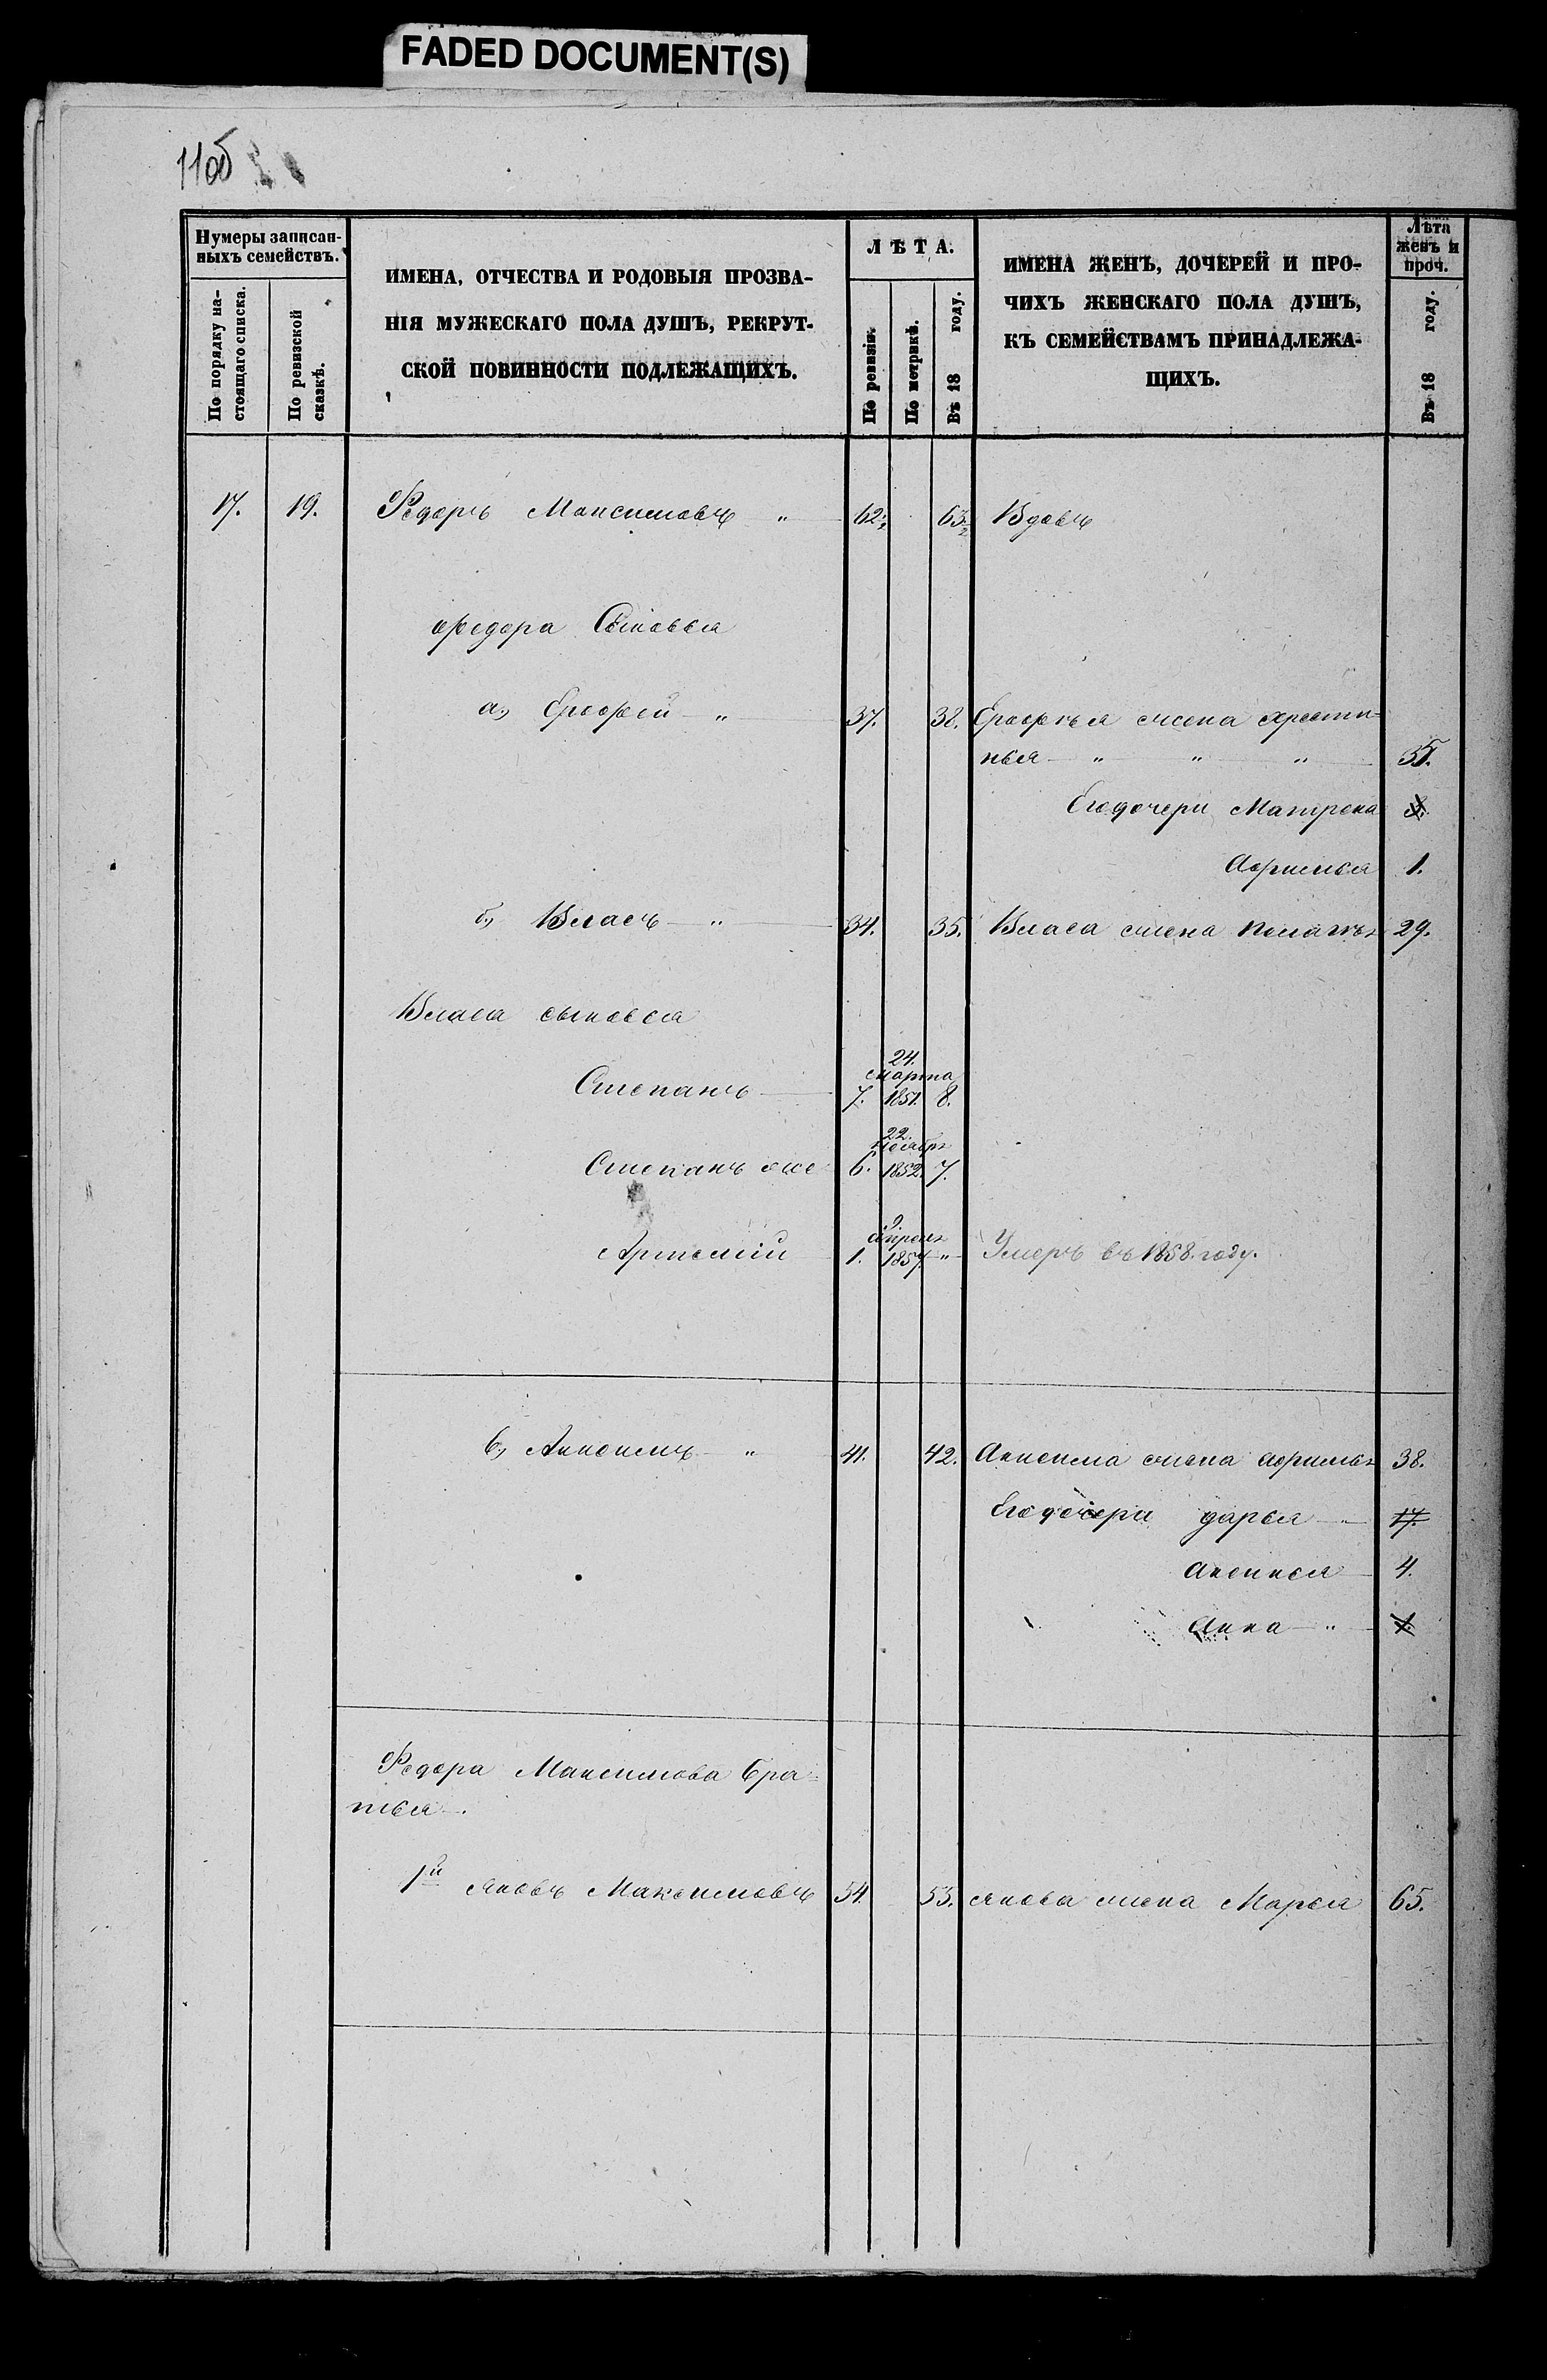 FADED DOCUMENT(S)
11об
Нумеры записан-
ныхъ семействъ.
По порядку на-
стоящаго списка.
По ревизской
сказкѣ.
ИМЕНА, ОТЧЕСТВА И РОДОВЫЯ ПРОЗВА-
НІЯ МУЖЕСКАГО ПОЛА ДУШЪ, РЕКРУТ-
СКОЙ ПОВИННОСТИ ПОДЛЕЖАЩИХЪ.
ЛѢТА.
По ревизіи.
По метрикѣ.
Въ 18 году.
ИМЕНА ЖЕНЪ, ДОЧЕРЕЙ И ПРО-
ЧИХЪ ЖЕНСКАГО ПОЛА ДУШЪ,
КЪ СЕМЕЙСТВАМЪ ПРИНАДЛЕЖА-
ЩИХЪ.
Лѣта
женъ и
проч.
Въ 18 году.
17. 19. Федоръ Максимовъ " 62. 63. Вдовъ
Федора Сыновья
а., Ерофей " 37. 38. Ерофея жена Христи-
нья " " " 35.
Его дочери Матрена 3.
Афимья 1.
б., Власъ " 34. 35. Власа жена Пелагея 29.
Власа сыновья
Степанъ 7. 24. Марта 1851. 8.
Степанъ же 6. 22. 1852. 7.
Артемій 1. 9. Апреля 1857. " Умеръ въ 1858. году.
в, Анисимъ " 41. 42. Анисима жена Афимья 38.
Его дочери Дарья " 17.
Аксинья 4.
Анна " 1.
Федора Максимова бра-
тья.
1й Яковъ Максимовъ 54. 55. Якова жена Марья 65.